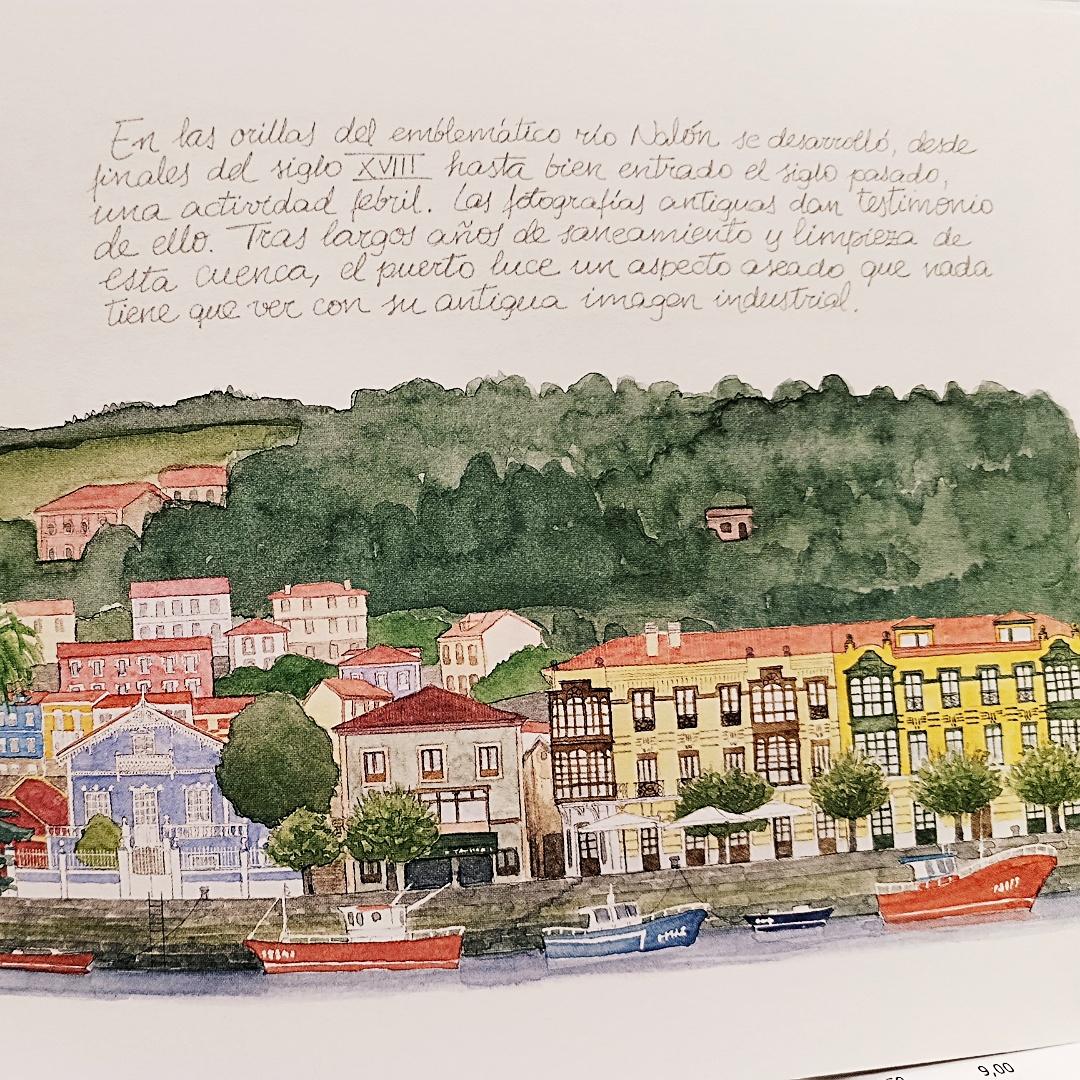 En las orillas del emblemático río Nalón se desarrolló, desde
finales del siglo XVIII hasta bien entrado el siglo pasado,
una actividad febril. Las fotografías antiguas dan testimonio
de ello. Tras largos años de saneamiento y limpieza de
esta cuenca, el puerto luce un aspecto aseado que nada
tiene que ver con su antigua imagen industrial.
9,00